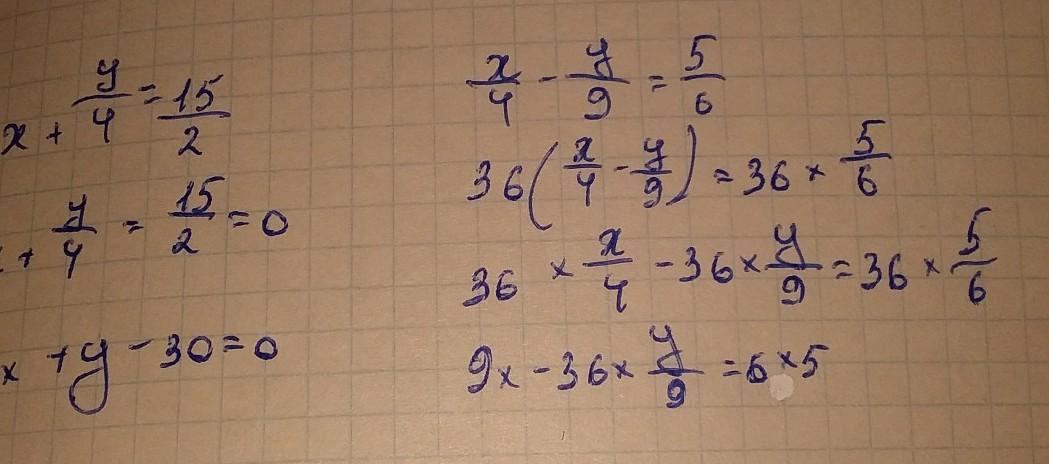 x + y/4 = 15/2
+ y/4 = 15/2 = 0
x + y - 30 = 0
x/4 - y/9 = 5/6
36(x/4 - y/9) = 36 × 5/6
36 × x/4 - 36 × y/9 = 36 × 5/6
9x - 36 × y/9 = 6 × 5